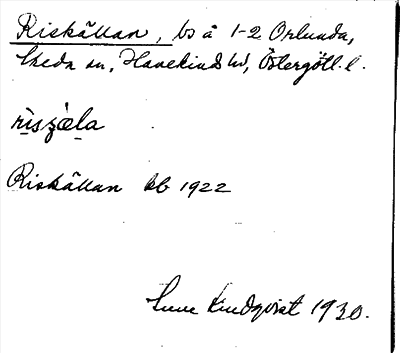 Riskällan, bs å 1-2 Orlunda,
Skeda sn, Hanekinds hd, Östergötl. l.
rìsʒ̀æla
Riskällan kb 1922
Sune Lindqvist 1930.